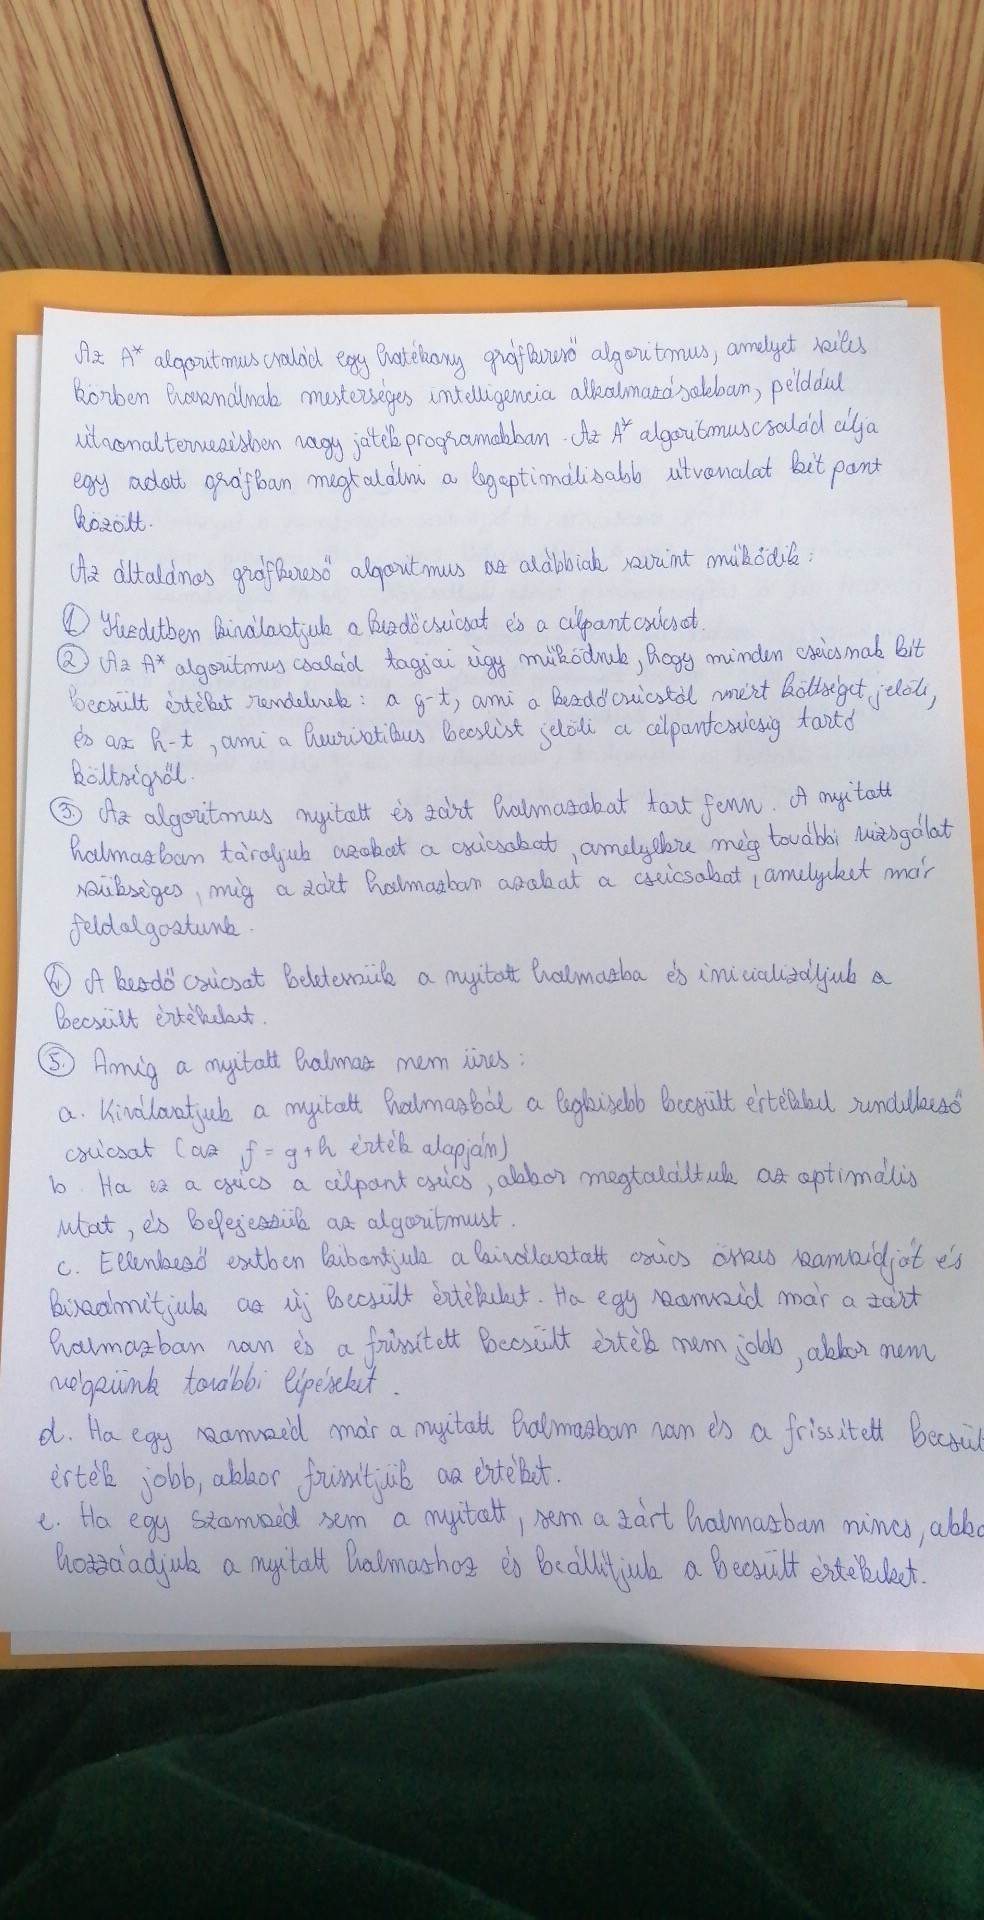 Az A* algoritmuscsalád egy hatékony gráfkereső algoritmus, amelyet széles
körben használnak mesterséges intelligencia alkalmazásokban, például
útvonaltervezésben vagy játékprogramokban. Az A* algoritmuscsalád célja
egy adott gráfban megtalálni a legoptimálisabb útvonalat két pont
között.
Az általános gráfkereső algoritmus az alábbiak szerint működik:
① Kezdetben kiválasztjuk a kezdőcsúcsot és a célpontcsúcsot.
② Az A* algoritmus család tagjai úgy működnek, hogy minden csúcsnak két
becsült értéket rendelnek: a g-t, ami a kezdőcsúcstól mért költséget jelöli,
és az h-t, ami a heurisztikus becslést jelöli a célpontcsúcsig tartó
költségről.
③ Az algoritmus nyitott és zárt halmazokat tart fenn. A nyitott
halmazban tároljuk azokat a csúcsokat, amelyekre még további vizsgálat
szükséges, míg a zárt halmazban azokat a csúcsokat, amelyeket már
feldolgoztunk.
④ A kezdő csúcsot beletesszük a nyitott halmazba és inicializáljuk a
becsült értékeket.
⑤ Amíg a nyitott halmaz nem üres:
a. Kiválasztjuk a nyitott halmazból a legkisebb becsült értékkel rendelkező
csúcsot (az f = g+h érték alapján)
b. Ha ez a csúcs a célpont csúcs, akkor megtaláltuk az optimális
utat, és befejezzük az algoritmust.
c. Ellenkező esetben kibontjuk a kiválasztott csúcs összes szomszédját és
kiszámítjuk az új becsült értékeket. Ha egy szomszéd már a zárt
halmazban van és a frissített becsült érték nem jobb, akkor nem
végzünk további lépéseket.
d. Ha egy szomszéd már a nyitott halmazban van és a frissített becsül
érték jobb, akkor frissítjük az értéket.
e. Ha egy szomszéd sem a nyitott, sem a zárt halmazban nincs, akko
hozzáadjuk a nyitott halmazhoz és beállítjuk a becsült értékeket.